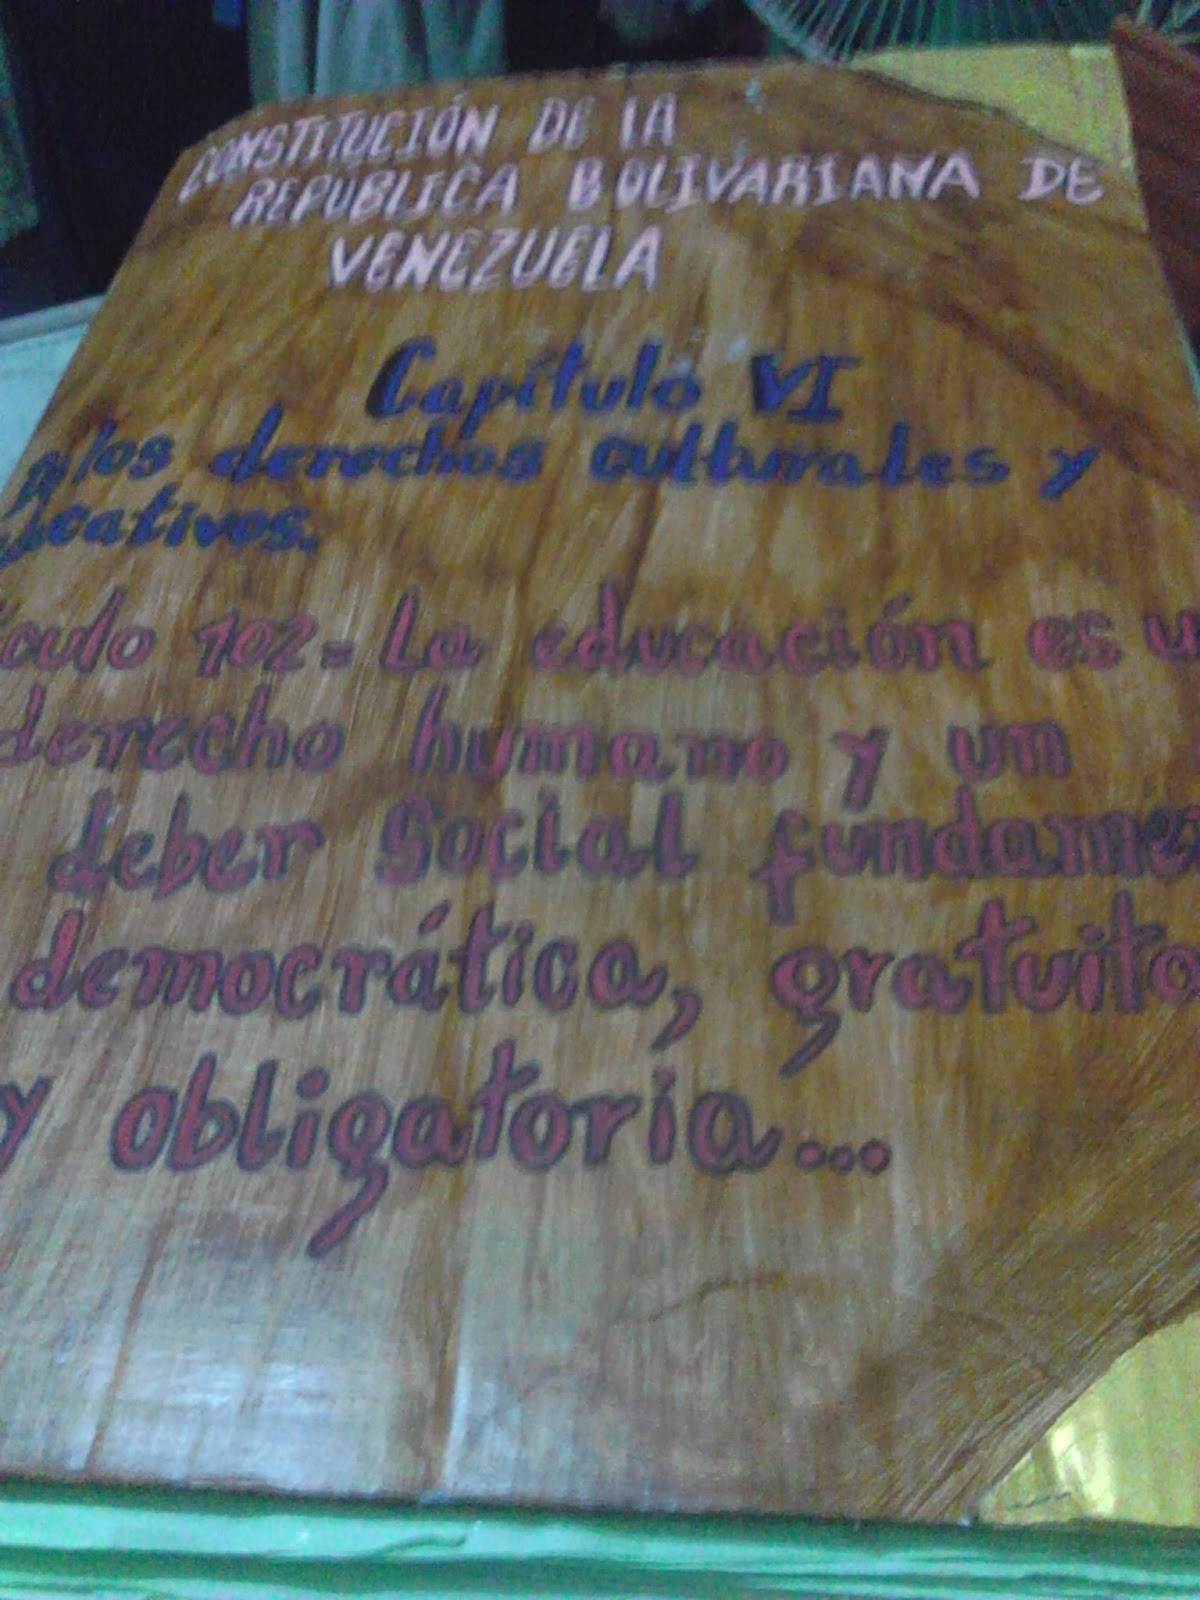 CONSTITUCIÓN DE LA
REPÚBLICA BOLIVARIANA DE
VENEZUELA
Capítulo VI
De los derechos culturales y
ucativos.
ículo 102= La educación es u
derecho humano y un
deber Social fundame
democrática, gratuita
y obligatoria...